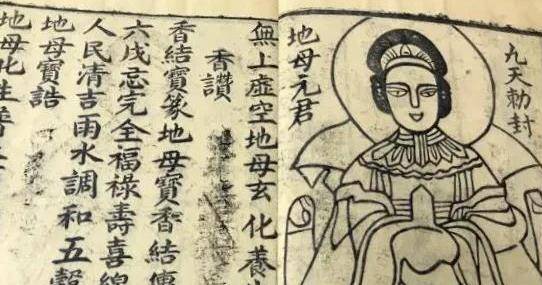 九天勅封
地母元君
無上虛空地母玄化養
香讚
香結寶篆地母寶香結傳
六戊忘完全福祿壽喜綿
人民清吉雨水調和五穀
地母寶誥
地母化生